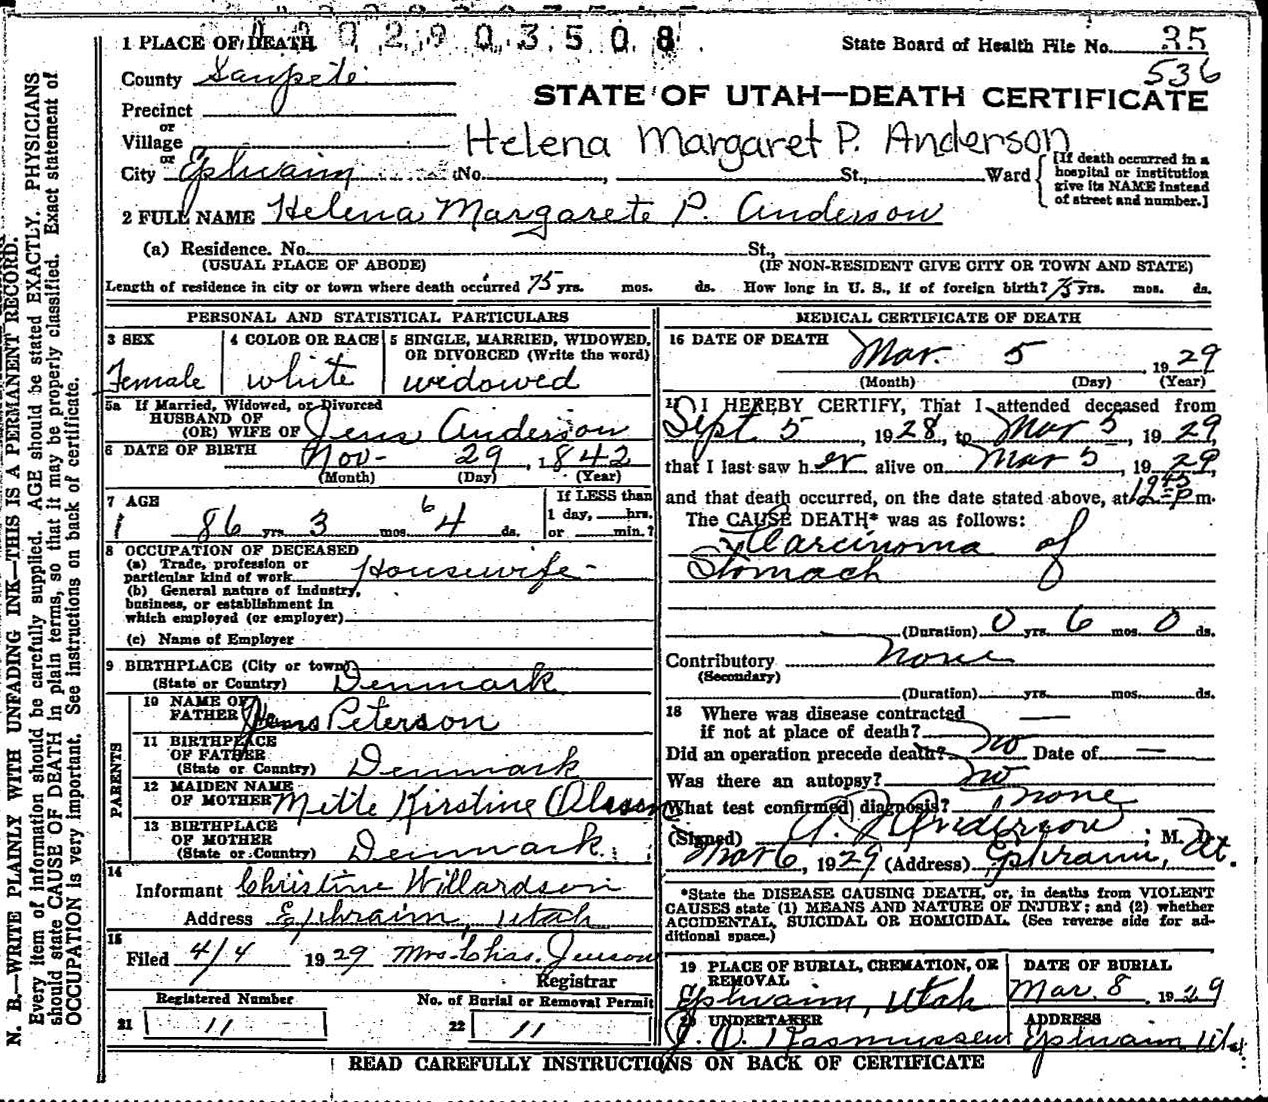 1 PLACE OF DEATH 1 0 0 2 9 0 3 5 0 8 State Board of Health File No. 35
County Sanpete 536
STATE OF UTAH—DEATH CERTIFICATE
Precinct
or
Village Helena Margaret P. Anderson
or
City Ephraim No. , St., Ward [If death occurred in a hospital or institution give its NAME instead of street and number.]
2 FULL NAME Helena Margarete P. Anderson
(a) Residence. No. St.,
(USUAL PLACE OF ABODE) (IF NON-RESIDENT GIVE CITY OR TOWN AND STATE)
Length of residence in city or town where death occurred 75 yrs. mos. ds. How long in U. S., if of foreign birth? 75 yrs. mos. ds.
PERSONAL AND STATISTICAL PARTICULARS
3 SEX
Female
4 COLOR OR RACE
white
5 SINGLE, MARRIED, WIDOWED,
OR DIVORCED (Write the word)
widowed
5a If Married, Widowed, or Divorced
HUSBAND OF
(OR) WIFE OF Jens Anderson
6 DATE OF BIRTH Nov- 29, 1842
(Month) (Day) (Year)
7 AGE
86 yrs. 3 mos. 6 4 ds.
If LESS than
1 day, hrs.
or min.?
8 OCCUPATION OF DECEASED
(a) Trade, profession or
particular kind of work Housewife-
(b) General nature of industry,
business, or establishment in
which employed (or employer)
(c) Name of Employer
9 BIRTHPLACE (City or town)
(State or Country) Denmark
PARENTS
10 NAME OF
FATHER Peterson
11 BIRTHPLACE
OF FATHER
(State or Country) Denmark
12 MAIDEN NAME
OF MOTHER Mette Kirstine
13 BIRTHPLACE
OF MOTHER
(State or Country) Denmark
14
Informant Christine Willardson
Address Ephraim, Utah
15
Filed 4/4 1929 Mrs. Chas. Jenson
Registrar
Registered Number
21 11
No. of Burial or Removal Permit
22 11
MEDICAL CERTIFICATE OF DEATH
16 DATE OF DEATH
Mar. 5, 1929
(Month) (Day) (Year)
17 I HEREBY CERTIFY, That I attended deceased from
Sept. 5, 1928, to Mar 5, 1929
that I last saw her alive on Mar 5, 1929,
and that death occurred, on the date stated above, at 12 45 P m.
The CAUSE DEATH* was as follows:
Carcinoma of
Stomach
(Duration) 0 yrs. 6 mos. 0 ds.
Contributory none
(Secondary)
(Duration) yrs. mos. ds.
18 Where was disease contracted
if not at place of death? —
Did an operation precede death? no Date of —
Was there an autopsy? no
What test confirmed diagnosis? none
(Signed) Anderson, M. D.
Mar 6, 1929 (Address) Ephraim, Ut.
*State the DISEASE CAUSING DEATH, or, in deaths from VIOLENT
CAUSES state (1) MEANS AND NATURE OF INJURY; and (2) whether
ACCIDENTAL, SUICIDAL OR HOMICIDAL. (See reverse side for ad-
ditional space.)
19 PLACE OF BURIAL, CREMATION, OR
REMOVAL
Ephraim, Utah
DATE OF BURIAL
Mar. 8 1929
20 UNDERTAKER
Rasmussen
ADDRESS
Ephraim Utah
READ CAREFULLY INSTRUCTIONS ON BACK OF CERTIFICATE
N. B.—WRITE PLAINLY WITH UNFADING INK—THIS IS A PERMANENT RECORD.
Every item of information should be carefully supplied. AGE should be stated EXACTLY. PHYSICIANS
should state CAUSE OF DEATH in plain terms, so that it may be properly classified. Exact statement of
OCCUPATION is very important. See instructions on back of certificate.